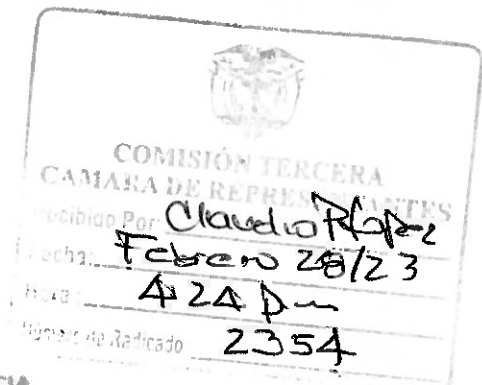 COMISIÓN TERCERA
CAMARA DE REPRESENTANTES
Recibido Por Claudio
Fecha: Febrero 28/23
Hora: 4:24 pm
Número de Radicado 2354